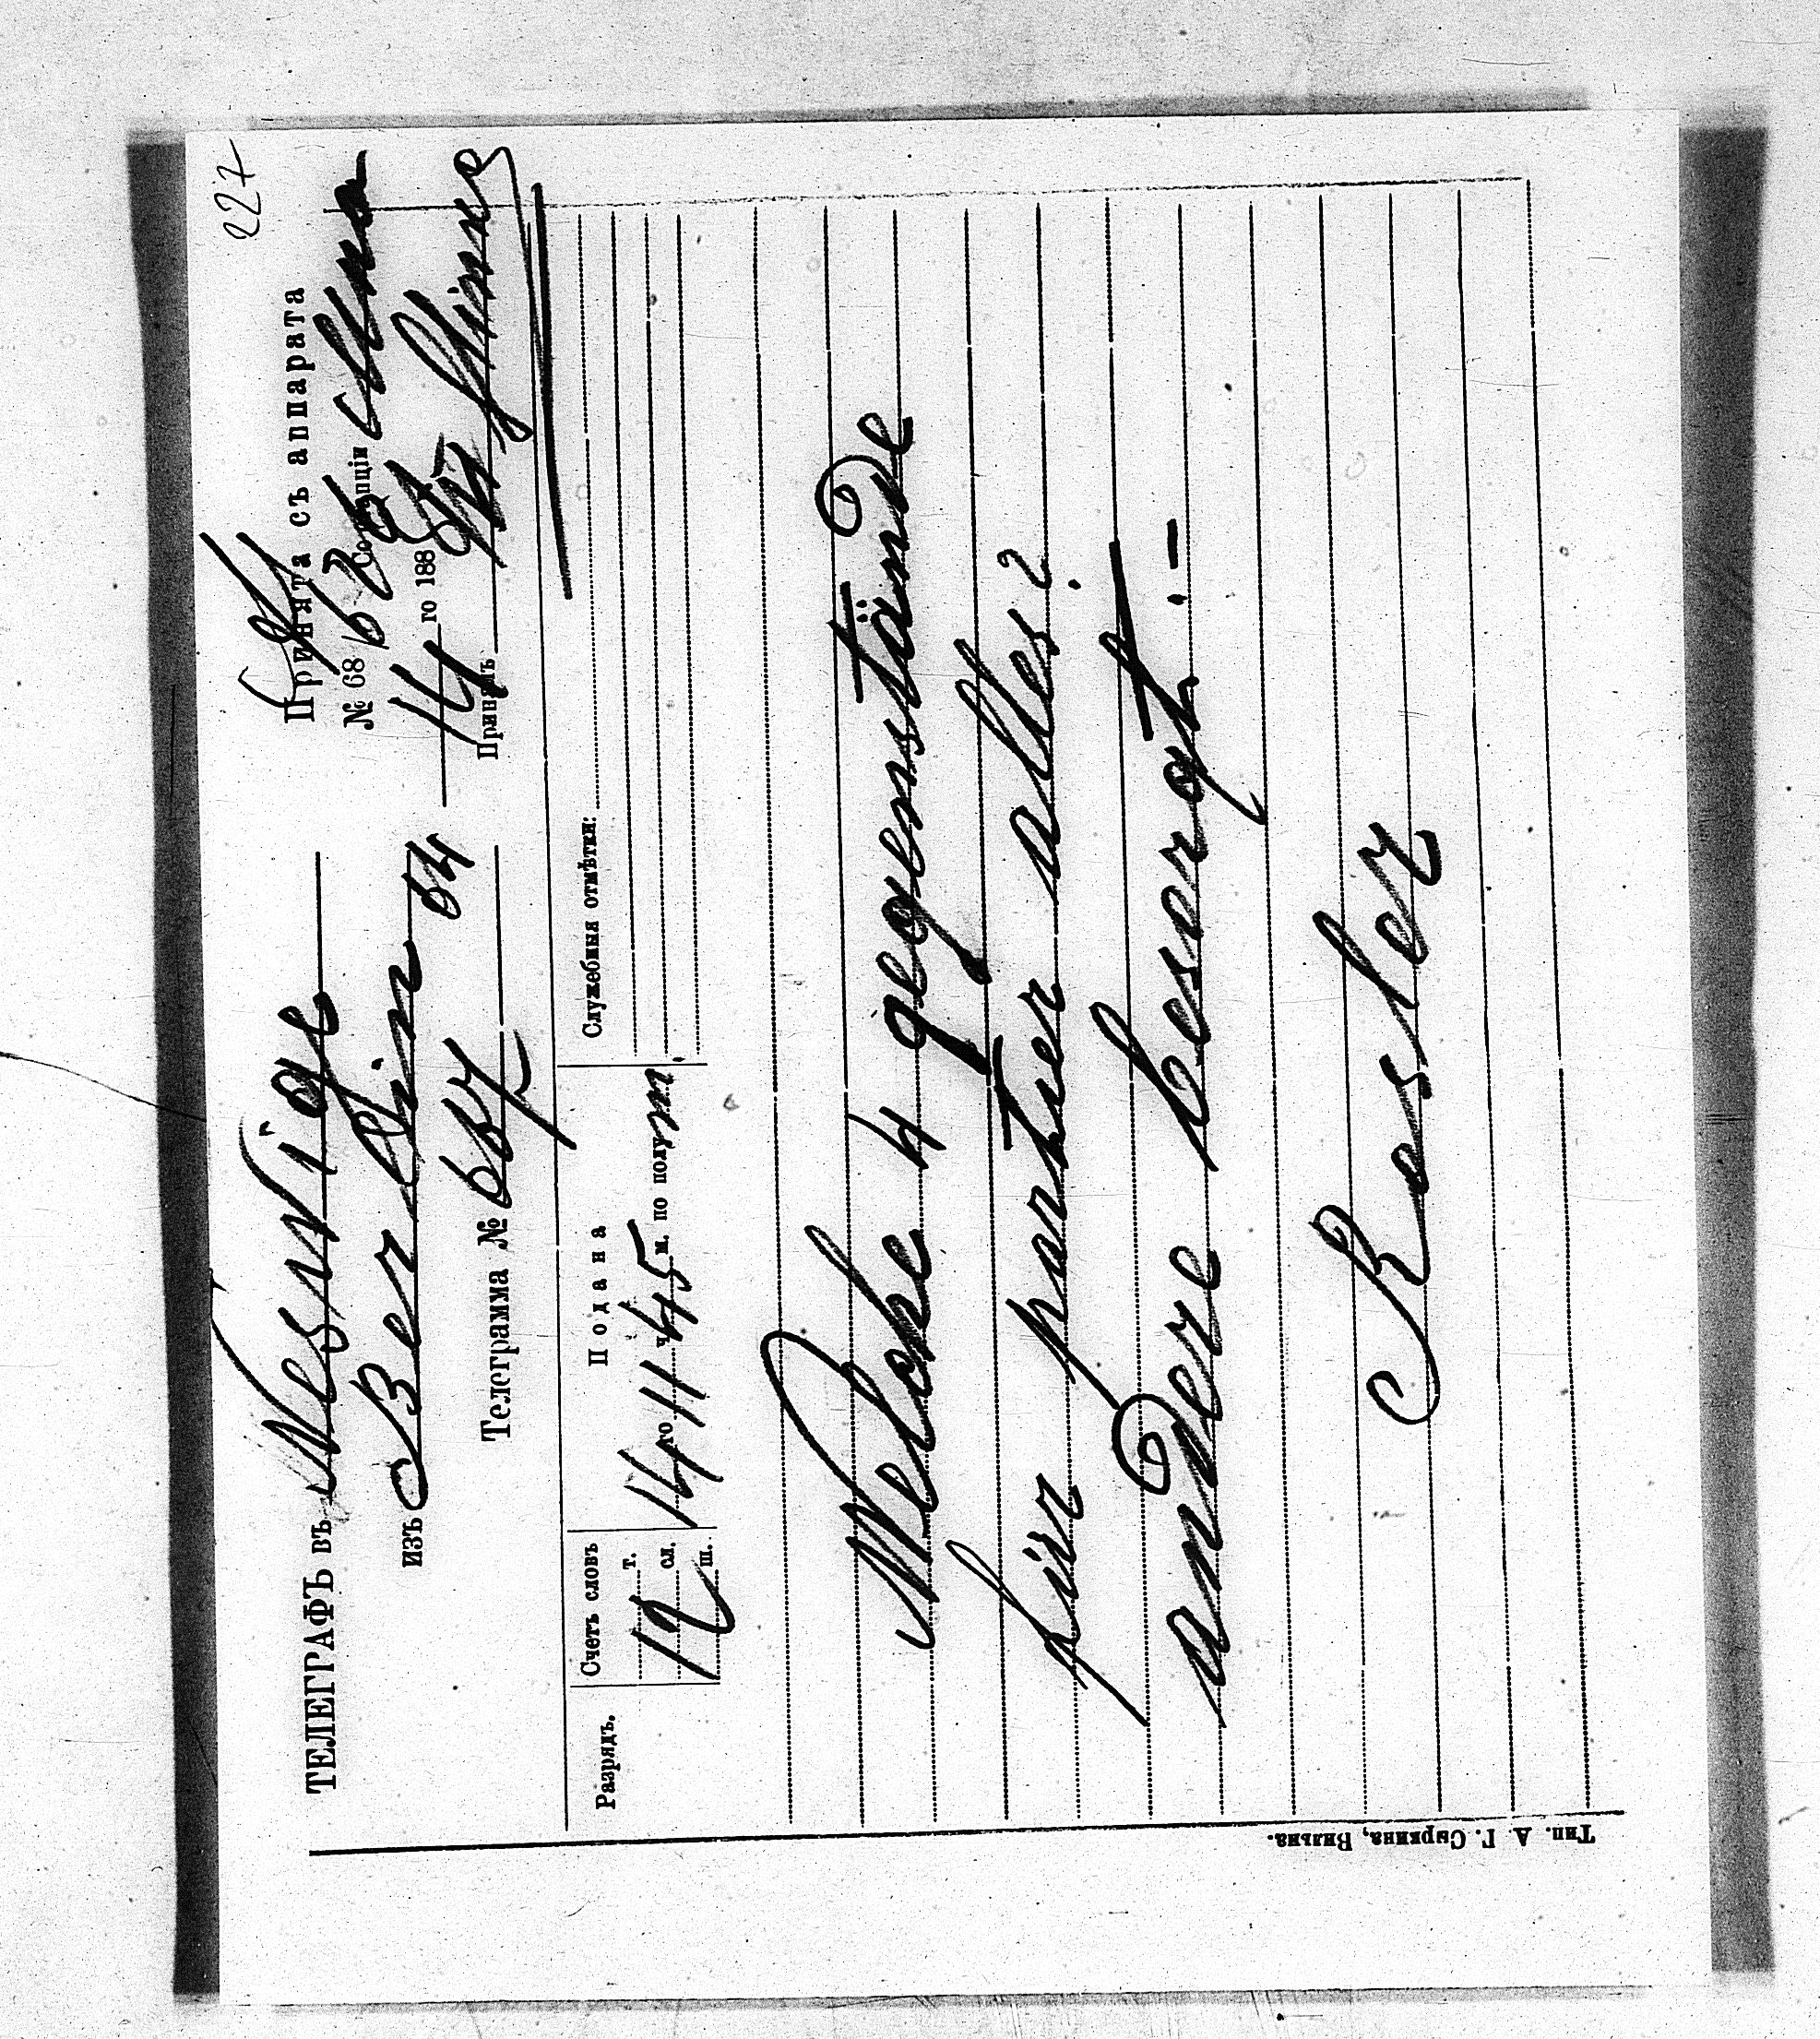 227
ТЕЛЕГРАФЪ въ Nesvige
изъ Berlin 04
Телеграмма №
Принята съ аппарата
№ 68
14 го 188
Принялъ
Разрядъ.
Счетъ словъ
12
т.
сл.
ш.
Подана
14 го 11 ч. 45 м. по полун
Служебныя отмѣтки:
Welche 4 gegenstände
für partier alles?
andere besorgt. -
Kosler
Тип. А. Г. Сыркина, Вильна.